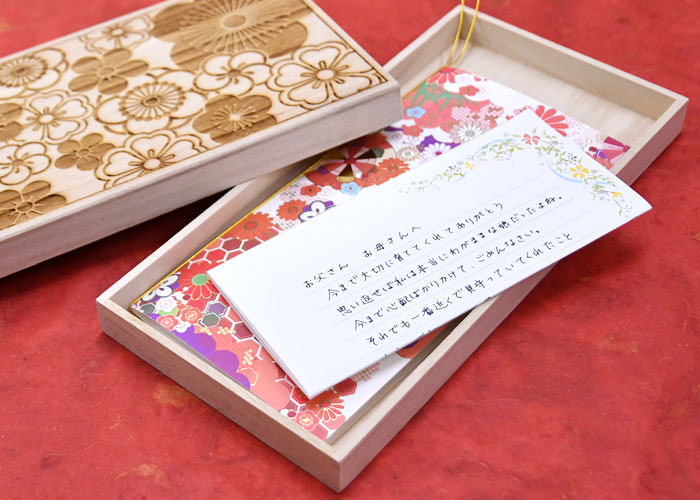 お父さん お母さんへ
今まで大切に育ててくれてありがとう
思い返せば私は本当にわがままな娘だったよね。
今まで心配ばかりかけて、ごめんなさい。
それでも一番近くで見守っていてくれたこと